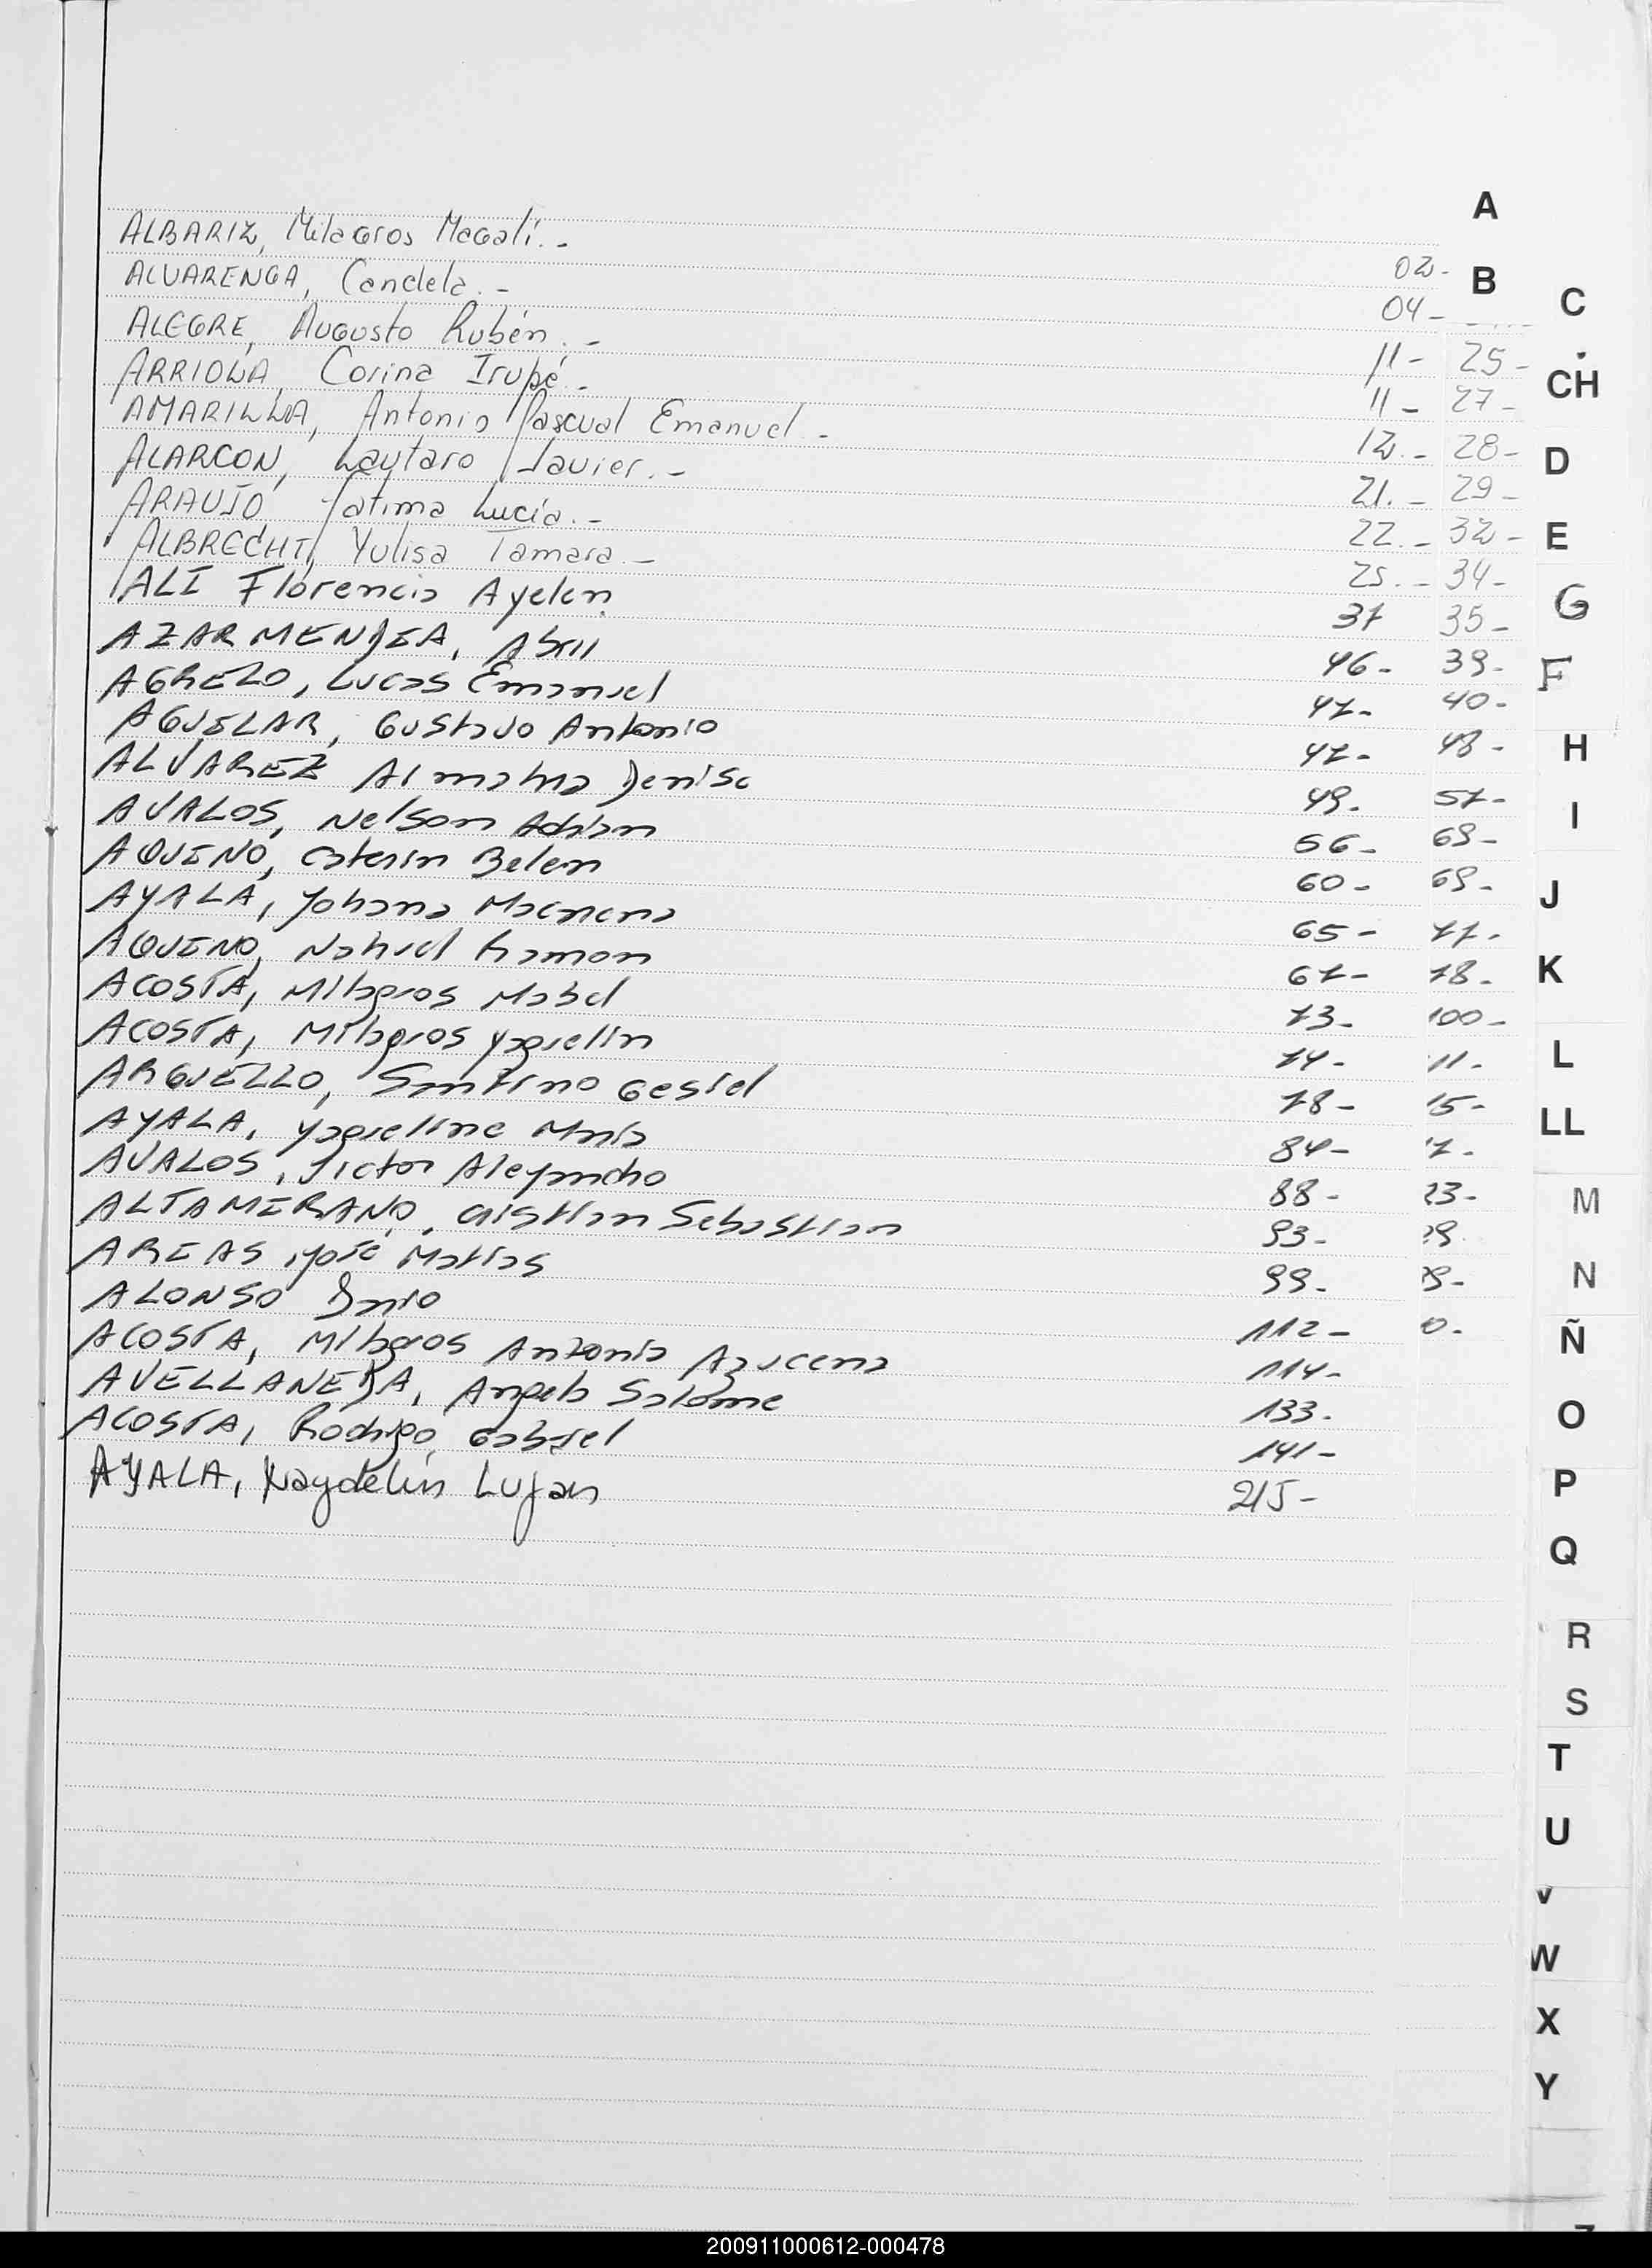 A
ALBARIZ, Milagros Magalí.- 02-
B
ALVARENGA, Candela.- 04-
C
ALEGRE, Augusto Rubén.- 11- 25-
CH
ARRIOLA, Corina Irupé.- 11- 27-
AMARILLA, Antonio Pascual Emanuel.- 12.- 28-
D
ALARCON, Lautaro Javier.- 21.- 29-
ARAUJO Fatima Lucía.- 22.- 32-
E
ALBRECHT, Yulisa Tamara.- 25.- 34-
ALI Florencia Ayelen. 37 35-
G
AZARMENDIA, Abril 46- 39-
F
AGREZO, Lucas Emanuel 47- 40-
AGUILAR, Gustavo Antonio 47- 48-
H
ALVAREZ Denise 49- 57-
I
AVALOS, Nelson Adrian 56- 69-
AQUINO, Caterin Belen 60- 69-
J
AYALA, Johana Macarena 65- 77-
AQUINO, Nahuel Ramon 67- 78-
K
ACOSTA, Milagros Mabel 73- 100-
ACOSTA, Milagros Yaquelin 74- 11-
L
ARGUELLO, Santino Gesiel 78- 15-
LL
AYALA, Yaqueline María 84- 7-
AVALOS, Victor Alejandro 88- 23-
M
ALTAMIRANO, Cristian Sebastian 93- 29
ARIAS, José Matías 99-
N
ALONSO Dario 112- 0-
Ñ
ACOSTA, Milagros Antonia Azucena 114-
AVELLANEDA, Angela Salome 133-
O
ACOSTA, Rodrigo Gabriel 141-
AYALA, Naydelin Lujan 215-
P
Q
R
S
T
U
V
W
X
Y
200911000612-000478